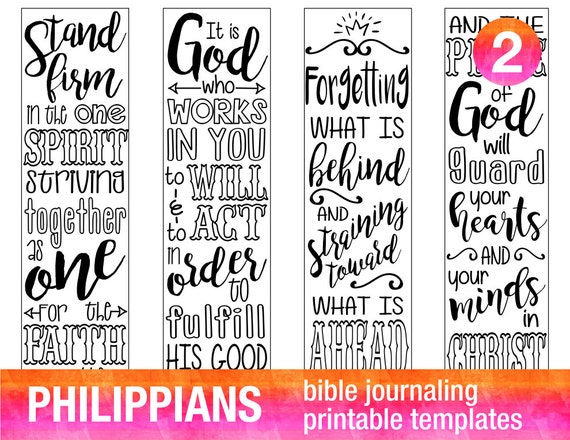 Stand
firm
in the one
SPIRIT
striving
together
as
one
for the
FAITH
It is
God
who
WORKS
IN YOU
to WILL
&
to ACT
in
order
to
fulfill
HIS GOOD
Forgetting
WHAT IS
behind
AND
straining
toward
WHAT IS
AHEAD
AND THE
of
God
will
guard
your
hearts
AND
your
minds
in
CHRIST
2
PHILIPPIANS
bible journaling
printable templates